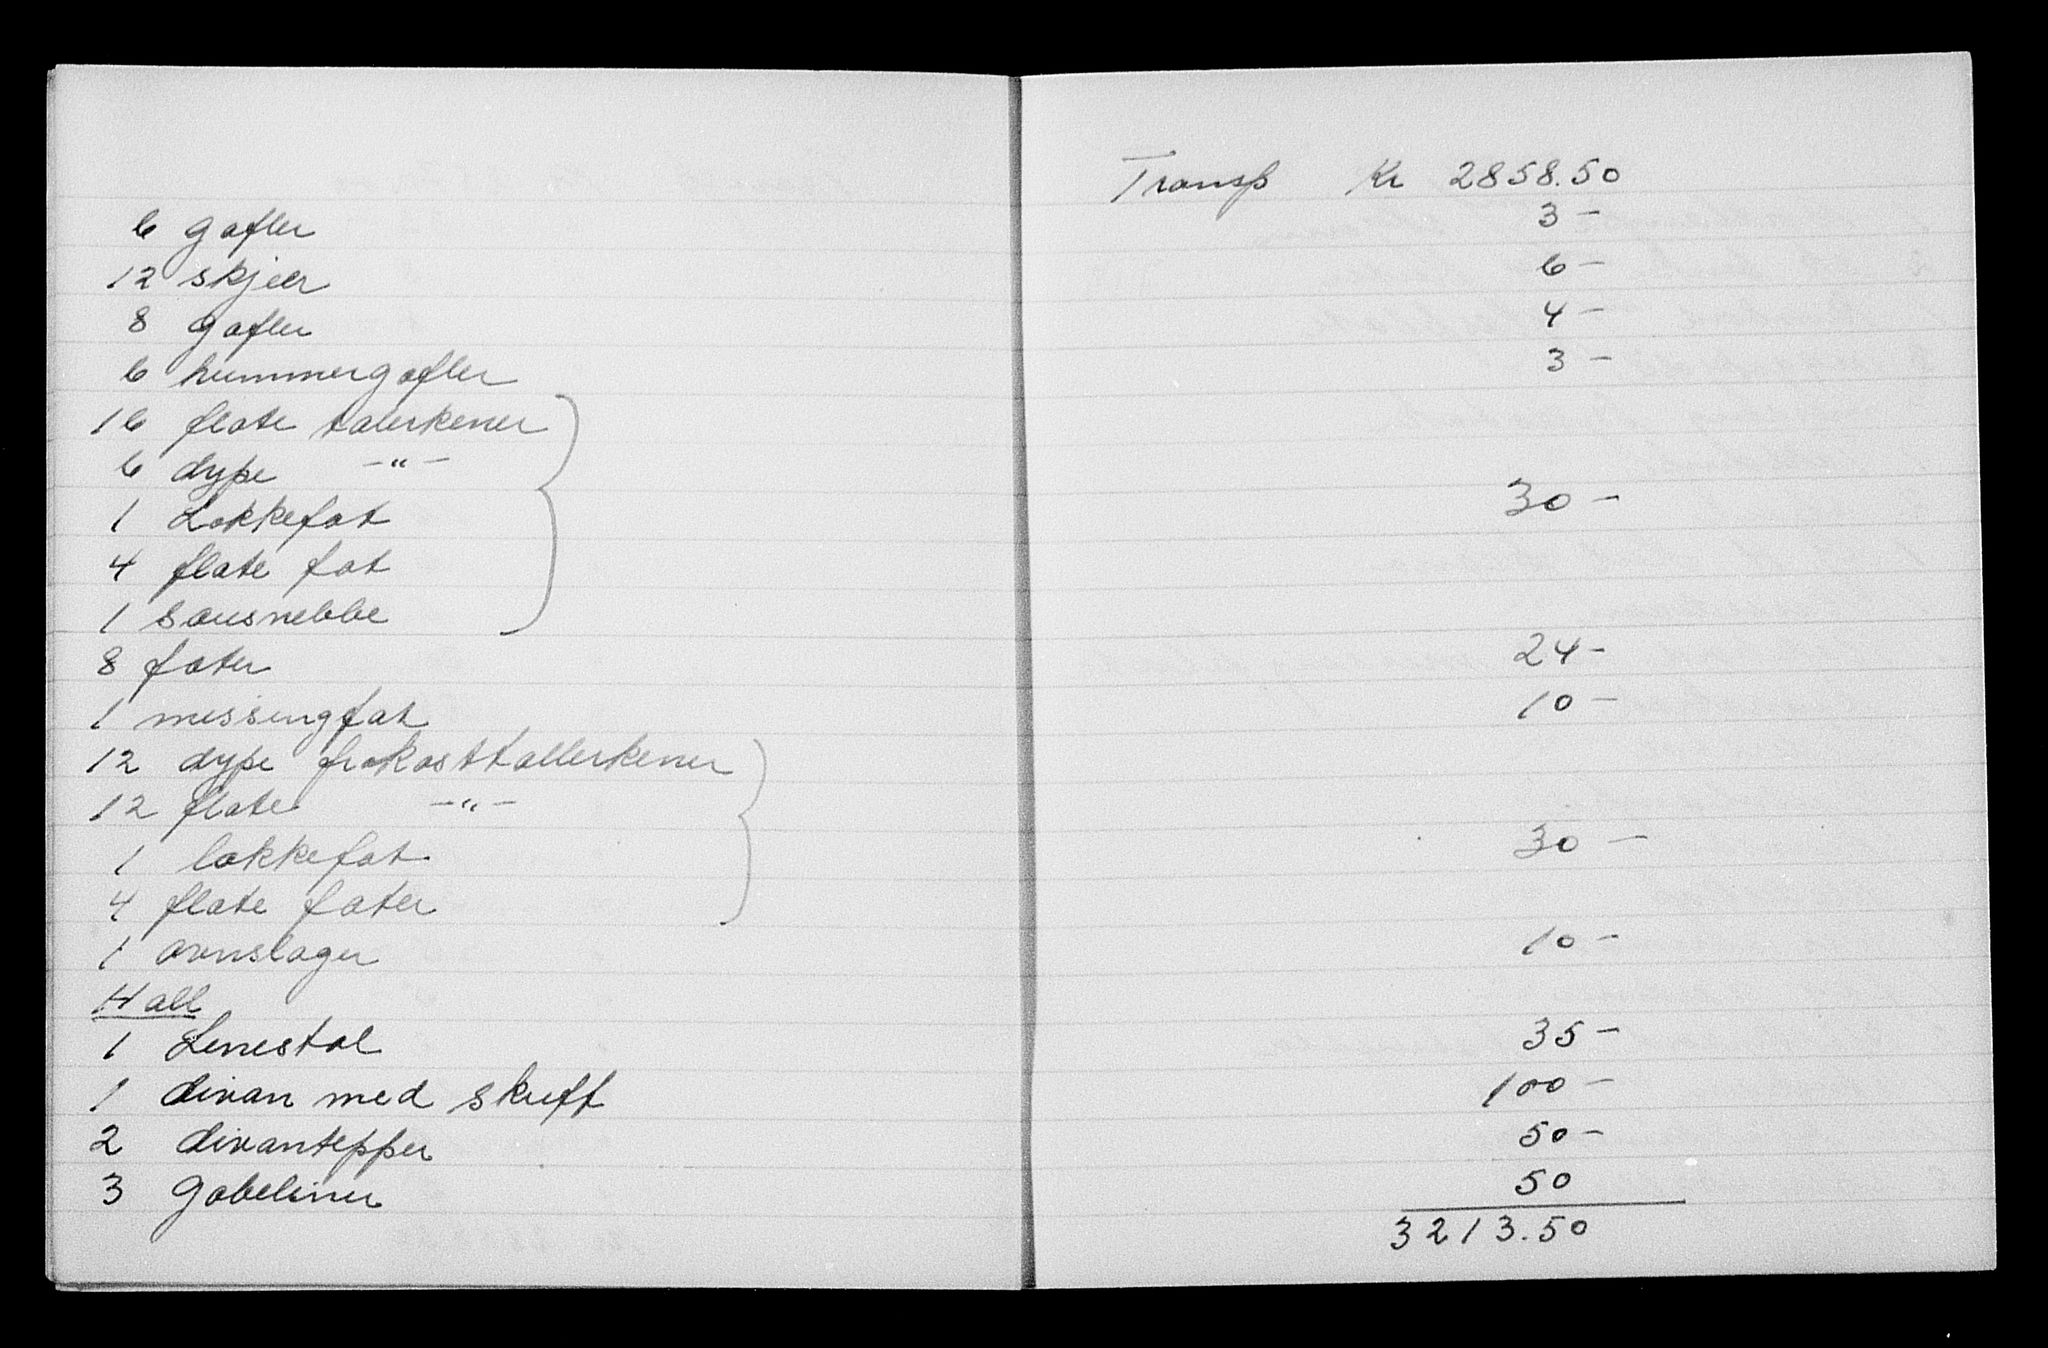 Transp Kr 2858.50
6 gafler 3 -
12 skjeer 6 -
8 gafler 4 -
6 hummergafler 3 -
16 flate talerkener
6 dype -"-
1 Lokkefat 30 -
4 flate fat
1 sausnebbe
8 fater 24 -
1 messingfat 10 -
12 dype frokosttallerkener
12 flate -"-
1 lokkefat 30 -
4 flate fater
1 ovnslager 10 -
Hall
1 Lenestol 35 -
1 divan med skuff 100 -
2 divantepper 50 -
3 Gobeliner 50
3213.50